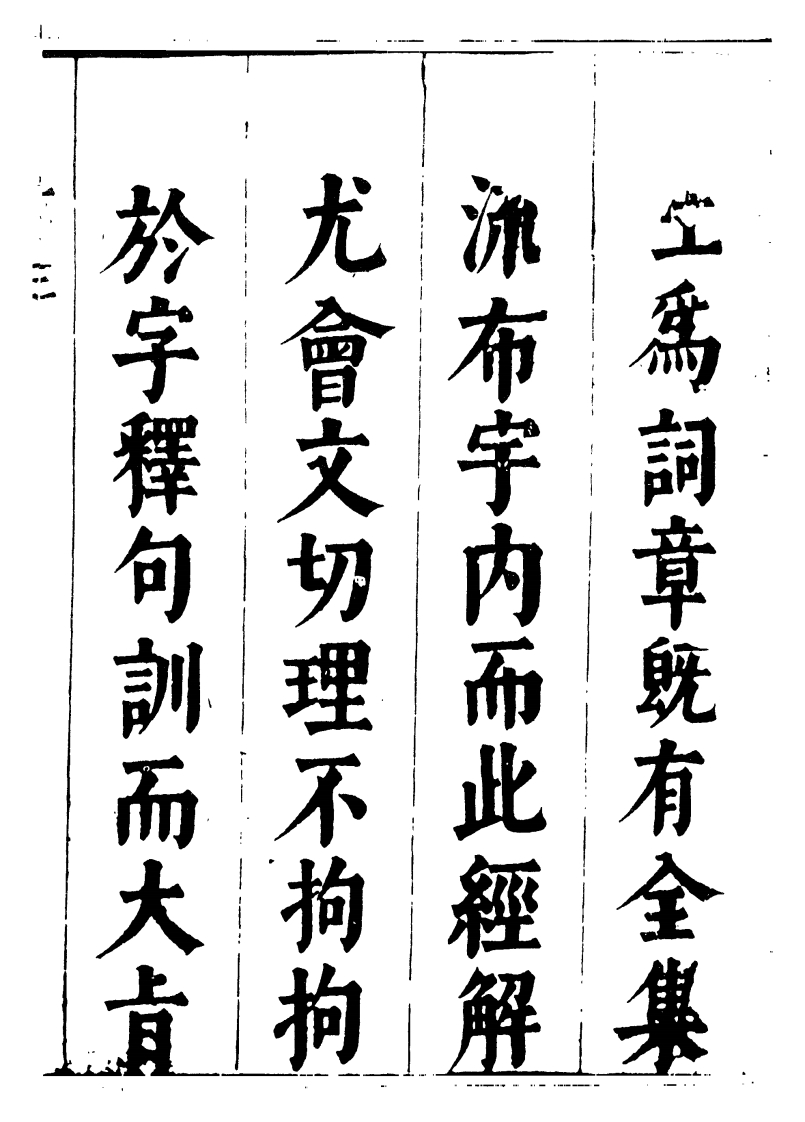 工爲詞章既有全集
流布宇内而此經解
尤會文切理不拘拘
於字釋句訓而大㫖